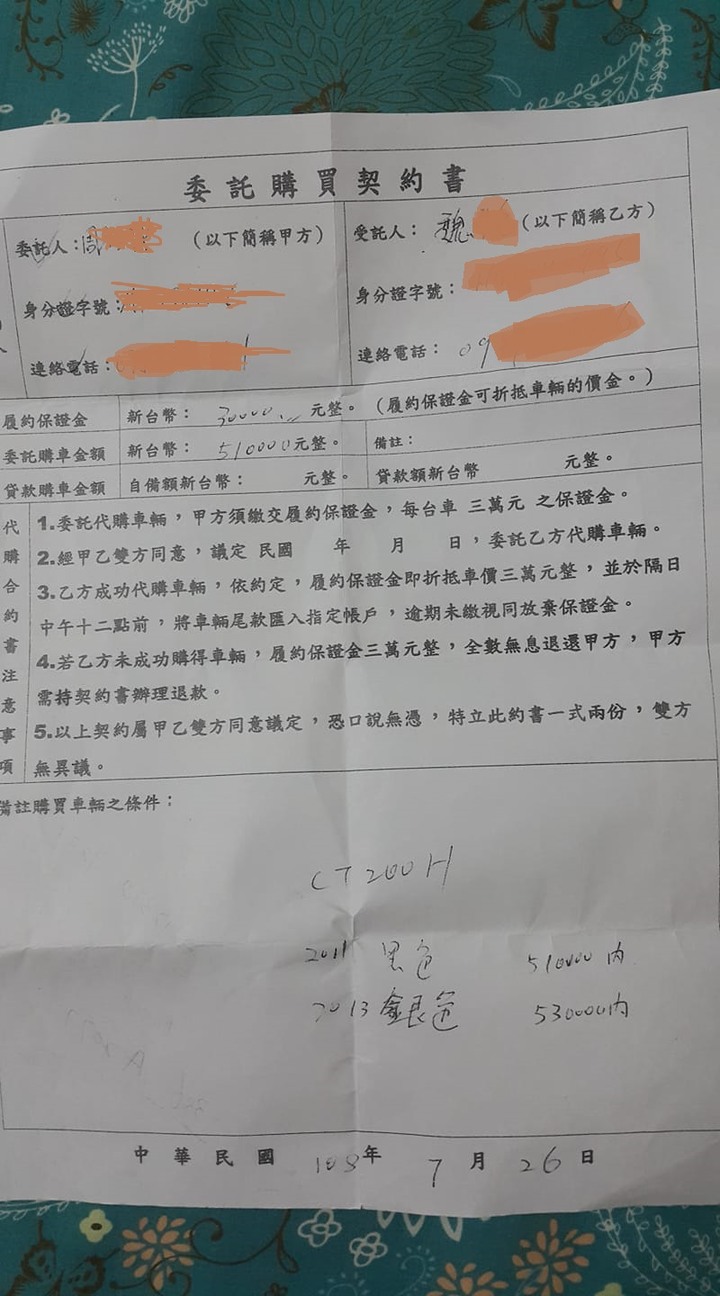 委託購買契約書
委託人：周 （以下簡稱甲方）
身分證字號：
連絡電話：
受託人：魏 （以下簡稱乙方）
身分證字號：
連絡電話：09
履約保證金 新台幣： 30000 元整。（履約保證金可折抵車輛的價金。）
委託購車金額 新台幣： 510000元整。 備註：
貸款購車金額 自備額新台幣： 元整。 貸款額新台幣 元整。
代購合約書注意事項
1.委託代購車輛，甲方須繳交履約保證金，每台車 三萬元 之保證金。
2.經甲乙雙方同意，議定 民國 年 月 日，委託乙方代購車輛。
3.乙方成功代購車輛，依約定，履約保證金即折抵車價三萬元整，並於隔日
中午十二點前，將車輛尾款匯入指定帳戶，逾期未繳視同放棄保證金。
4.若乙方未成功購得車輛，履約保證金三萬元整，全數無息退還甲方，甲方
需持契約書辦理退款。
5.以上契約屬甲乙雙方同意議定，恐口說無憑，特立此約書一式兩份，雙方
無異議。
備註購買車輛之條件：
CT200H
2011 黑色 510000內
2013 銀色 530000內
中華民國 108年 7月 26日